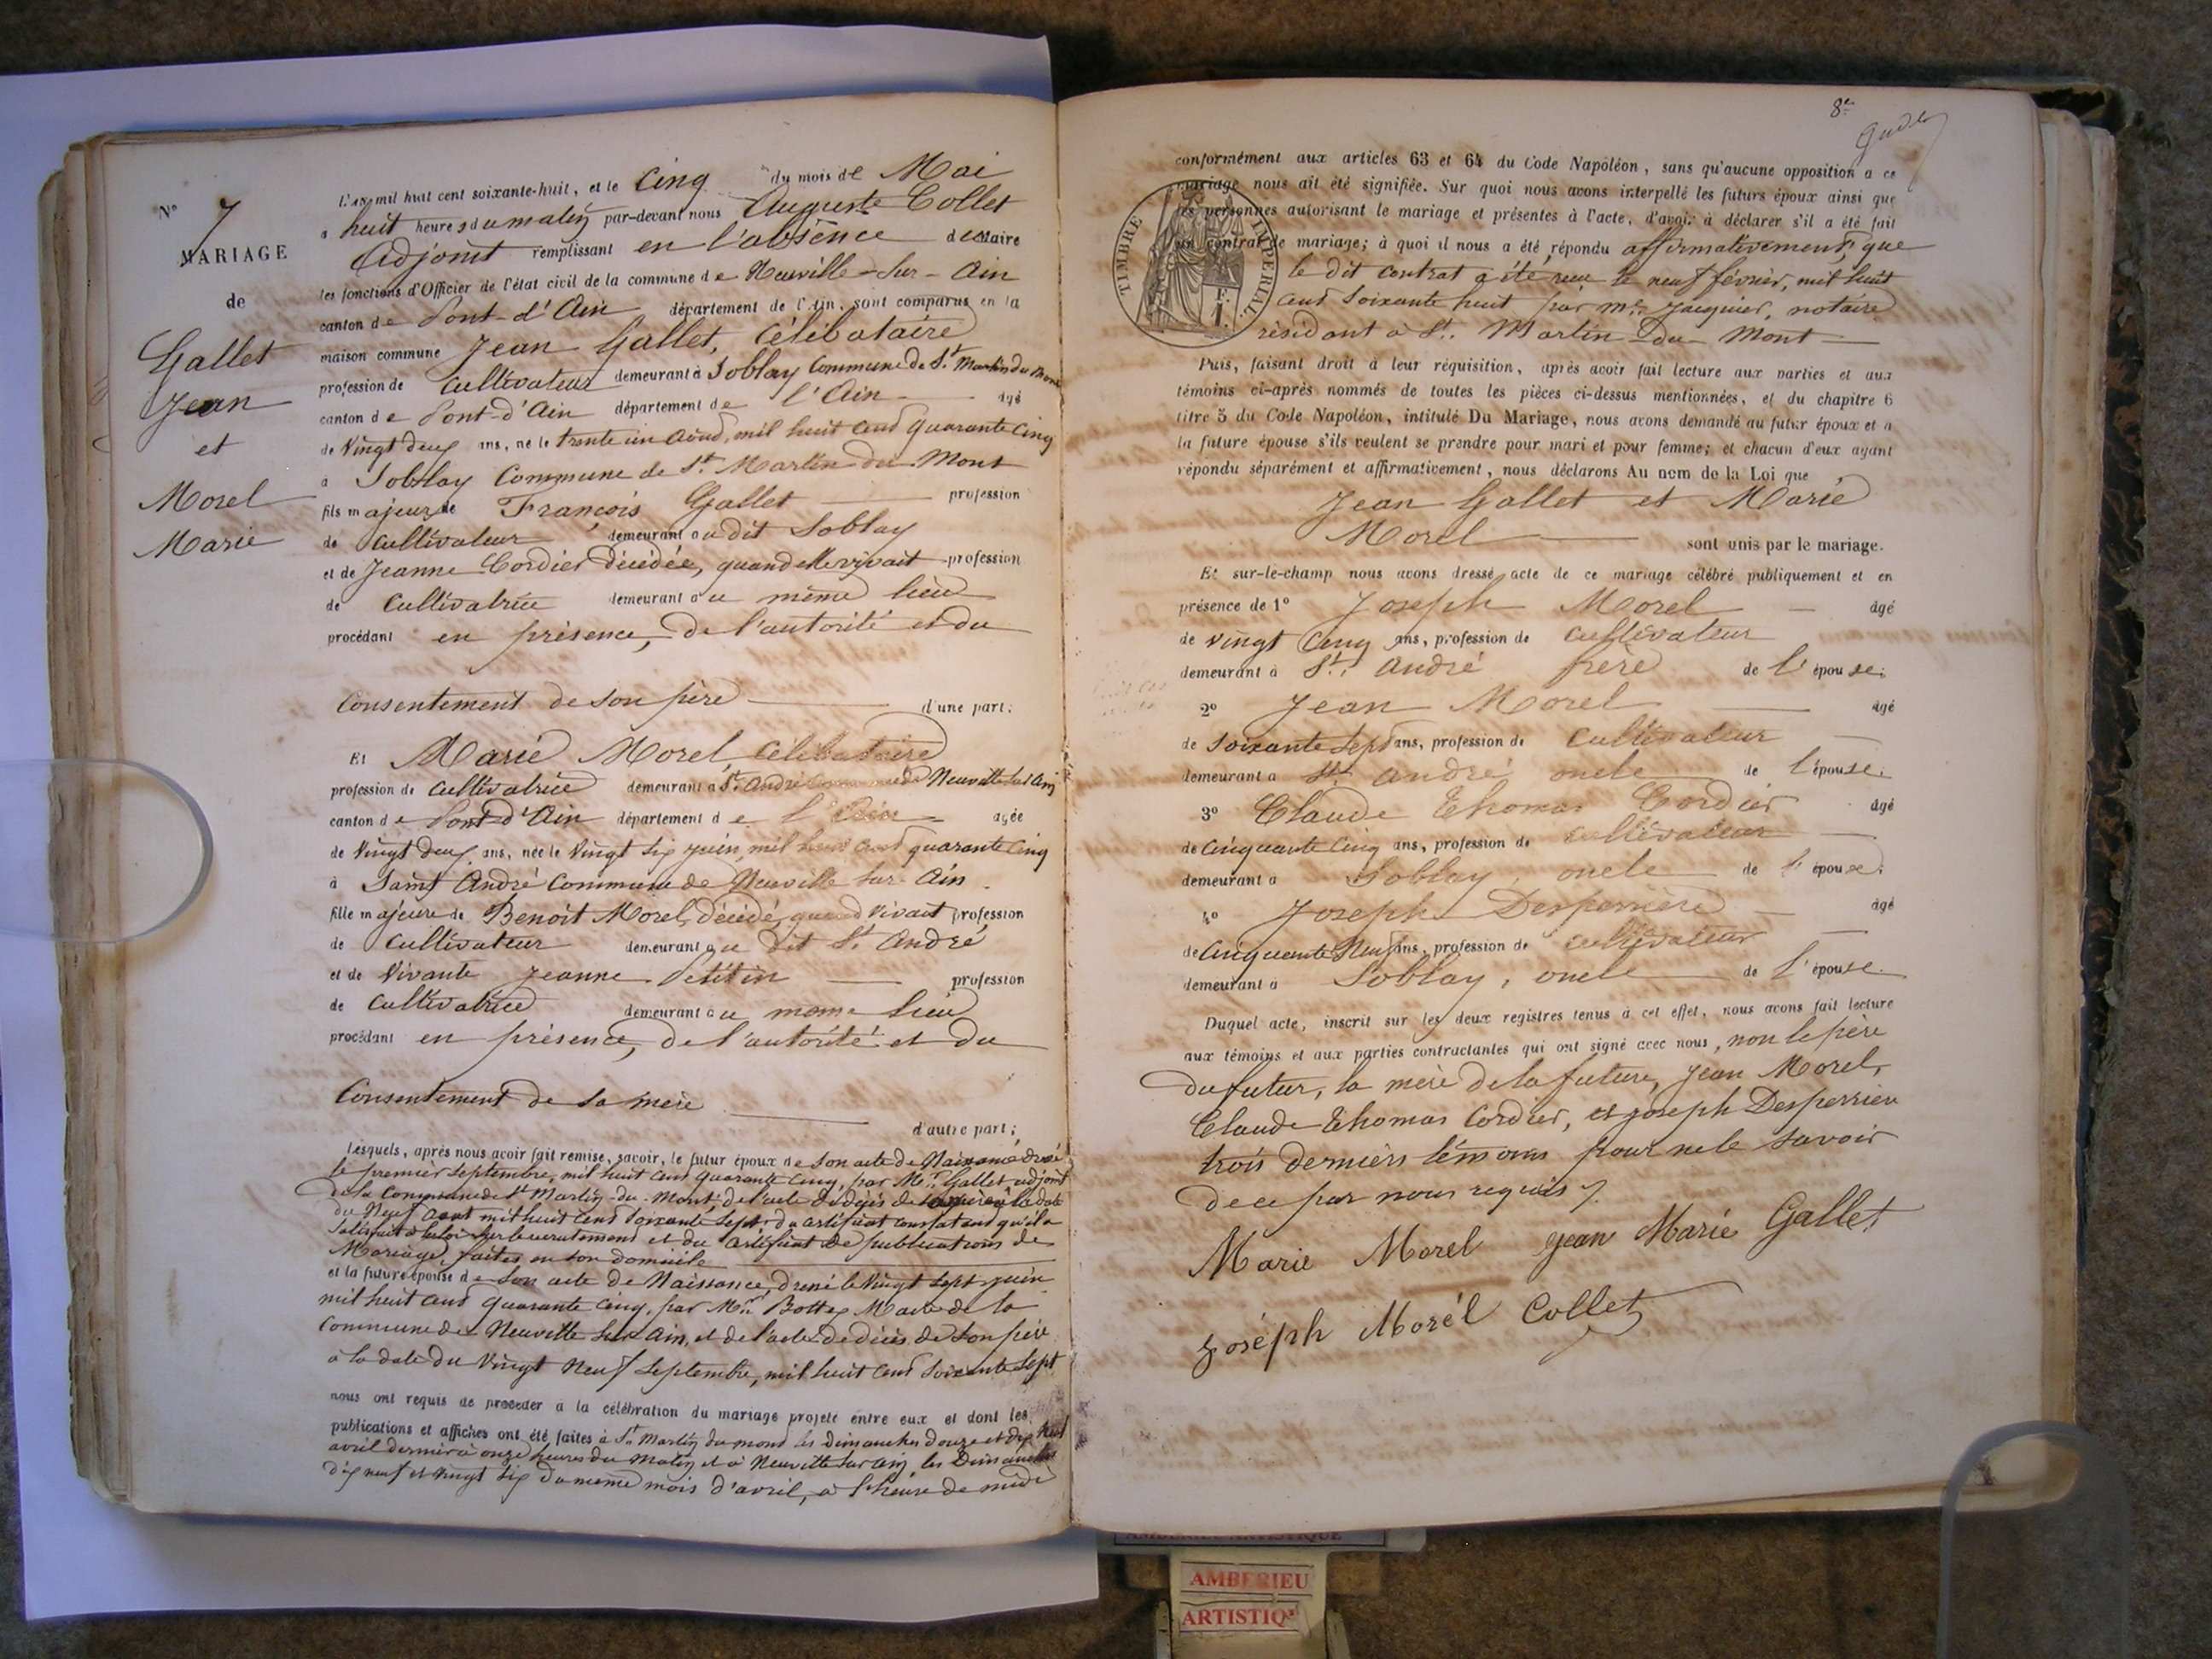 N° 7
MARIAGE
de
Gallet
Jean
et
Morel
Marie
L'an mil huit cent soixante-huit, et le Cinq du mois de Mai
a huit heures du matin par-devant nous Auguste Collet
Adjoint remplissant en l'absence du Maire
les fonctions d'Officier de l'état civil de la commune de Neuville-sur-Ain
canton de Pont-d'Ain département de l'Ain, sont comparus en la
maison commune Jean Gallet, Célibataire
profession de Cultivateur demeurant à Soblay Commune de St Martin du Mont
canton de Pont-d'Ain département de l'Ain âgé
de Vingt deux ans, né le trente un Août, mil huit cent quarante cinq
à Soblay Commune de St Martin du Mont
fils majeur de François Gallet profession
de Cultivateur demeurant au dit Soblay
et de Jeanne Cordier décédée, quand elle vivait profession
de Cultivatrice demeurant au même lieu
procédant en présence, de l'autorité et du
Consentement de son père d'une part;
Et Marie Morel, Célibataire
profession de Cultivatrice demeurant à St André Commune de Neuville sur Ain
canton de Pont-d'Ain département de l'Ain agée
de Vingt deux ans, née le Vingt six juin, mil huit cent quarante cinq
à Saint André Commune de Neuville sur Ain
fille majeure de Benoit Morel, décédé, quand vivait profession
de Cultivateur demeurant au dit St André
et de Vivante Jeanne Petitin profession
de Cultivatrice demeurant au meme lieu
procédant en présence, de l'autorité et du
Consentement de sa mère
d'autre part;
Lesquels, après nous avoir fait remise, savoir, le futur époux de son acte de Naissance dressé
le premier septembre, mil huit cent quarante cinq, par Mr Gallet adjoint
de la Commune de St Martin-du-Mont, de l'acte de décès de sa mère à la date
du Neuf Aout mil huit cent soixante sept, du certificat constatant qu'il a
satisfait à la loi sur le recrutement et du certificat de publications de
Mariage, faites en son domicile
et la future épouse de son acte de Naissance, dressé le Vingt sept juin
mil huit cent quarante cinq, par Mr Bottex Maire de la
Commune de Neuville sur Ain, et de l'acte de décès de son père
à la date du Vingt Neuf Septembre, mil huit cent soixante sept
nous ont requis de procéder à la célébration du mariage projeté entre eux et dont les
publications et affiches ont été faites à St Martin du mont les Dimanches douze et dix neuf
avril dernier à onze heures du matin et à Neuville sur Ain, les Dimanches
dix neuf et vingt six du meme mois d'avril, à l'heure de midi
8e
conformément aux articles 63 et 64 du Code Napoléon, sans qu'aucune opposition a ce
mariage nous ait été signifiée. Sur quoi nous avons interpellé les futurs époux ainsi que
les personnes autorisant le mariage et présentes à l'acte, d'avoir à déclarer s'il a été fait
un contrat de mariage; à quoi il nous a été répondu affirmativement, que
le dit contrat a été reçu le neuf février, mil huit
cent soixante huit par Me Jacquier, notaire
résidant à St. Martin-du-Mont
TIMBRE IMPERIAL
F.
1.
Puis, faisant droit à leur réquisition, après avoir fait lecture aux parties et aux
témoins ci-après nommés de toutes les pièces ci-dessus mentionnées, et du chapitre 6
titre 5 du Code Napoléon, intitulé Du Mariage, nous avons demandé au futur époux et a
la future épouse s'ils veulent se prendre pour mari et pour femme; et chacun d'eux ayant
répondu séparément et affirmativement, nous déclarons Au nom de la Loi que
Jean Gallet et Marie
Morel sont unis par le mariage.
Et sur-le-champ nous avons dressé acte de ce mariage célébré publiquement et en
présence de 1° Joseph Morel âgé
de vingt cinq ans, profession de Cultivateur
demeurant à St. André frère de l'épouse;
2° Jean Morel âgé
de soixante sept ans, profession de Cultivateur
demeurant a St. André, oncle de l'épouse;
3° Claude Thomas Cordier âgé
de Cinquante Cinq ans, profession de Cultivateur
demeurant a Soblay, oncle de l'épouse;
4° Joseph Desperrière âgé
de Cinquante Neuf ans, profession de Cultivateur
demeurant à Soblay, oncle de l'épouse.
Duquel acte, inscrit sur les deux registres tenus à cet effet, nous avons fait lecture
aux témoins et aux parties contractantes qui ont signé avec nous, non le père
du futur, la mère de la future, Jean Morel,
Claude Thomas Cordier, et Joseph Desperrière
trois derniers témoins pour ne le savoir
de ce par nous requis
Marie Morel Jean Marie Gallet
Joséph Morél Collet
AMBERIEU ARTISTIQUE
AMBERIEU
ARTISTIQ